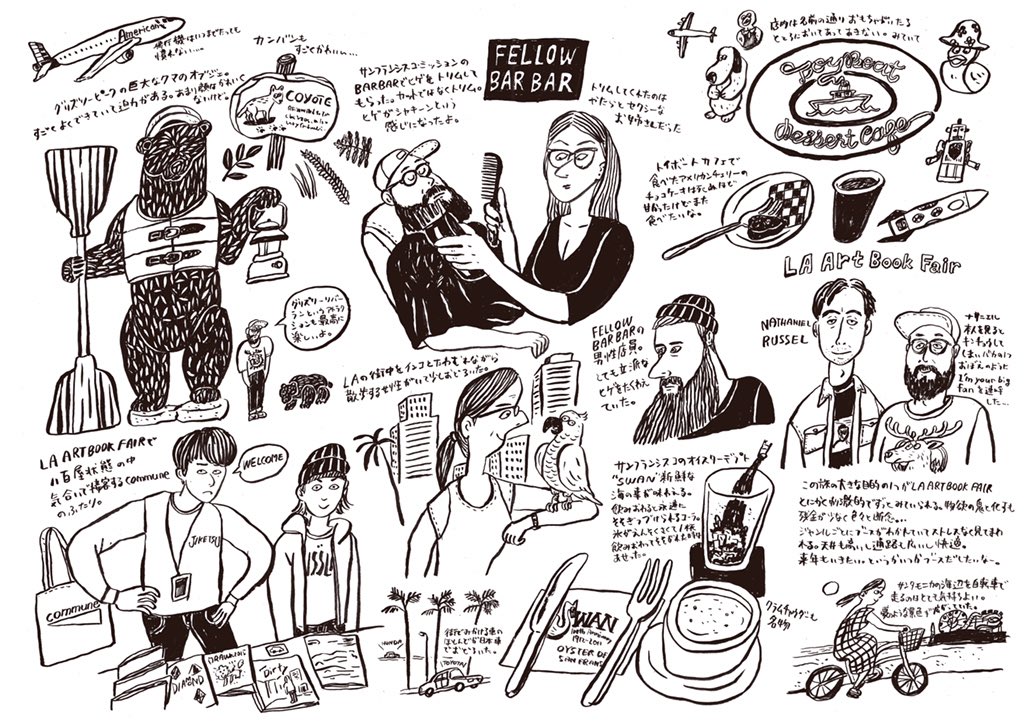 American
飛行機はいつまでたっても
慣れない…。
グリズリーピークの巨大なクマのオブジェ。
すごくよくできていて迫力がある。あまり顔はかわいく
ないけど。
カンバンも
すごくかわいい…。
COYOTE
サンフランシスコミッションの
BARBARでヒゲをトリムして
もらった。カットではなくトリム。
ヒゲがシャキーンという
感じになったよ。
FELLOW
BAR BAR
トリムしてくれたのは
かたことセクシーな
お姉さんだった
店内は名前の通りおもちゃがいたる
ところにおいてあってあきない。みていて
Toy Boat
dessert Cafe
トイボートカフェで
食べたアメリカンチェリーの
チョコケーキは死ぬほど
甘かったけどまた
食べたいな。
LA Art Book Fair
グリズリーリバー
ランというアトラク
ションも最高に
楽しいよ。
LAの街中をインコとたわむれながら
散歩する女性がいて少しおどろいた。
FELLOW
BARBARの
男性店員。
とても立派な
ヒゲをたくわえ
ていた。
NATHANIEL
RUSSEL
ナサニエル
本人を見ると
キンチョウして
しまい、バカの1つ
おぼえのように
I'm your big
fan を連呼
した…
LA ARTBOOK FAIRで
八百屋状態の中
気合いで接客するcommune
のふたり。
WELCOME
commune
DRAWING
DIAMOND
Dirty
HONDA
街でみかける車の
ほとんどが日本車
でおどろいた。
TOYOTA
サンフランシスコのオイスターデポット
"SWAN" 新鮮な
海の幸が味わえる。
飲みおわると永遠に
そそぎつづけられるコーラ。
氷がえんそくなくて1杯
飲みおわってもそがれた時
あせった。
SWAN
100th Anniversary
1912-2012
OYSTER DE
SAN FRANS
クラムチャウダーも
名物
この旅の大きな目的の1つがLA ARTBOOK FAIR
とにかく刺激的でずっとみていられる。物欲の鬼と化すも
残金が少なく色々と断念…。
ジャンルごとにブースがわかれていてストレスなく見てまわ
れる。天井も高いし通路も広いし快適。
来年もいきたい。というかいつかブースだしたいなー。
サンタモニカの海辺を自転車で
走るのはとても気持ちよい。